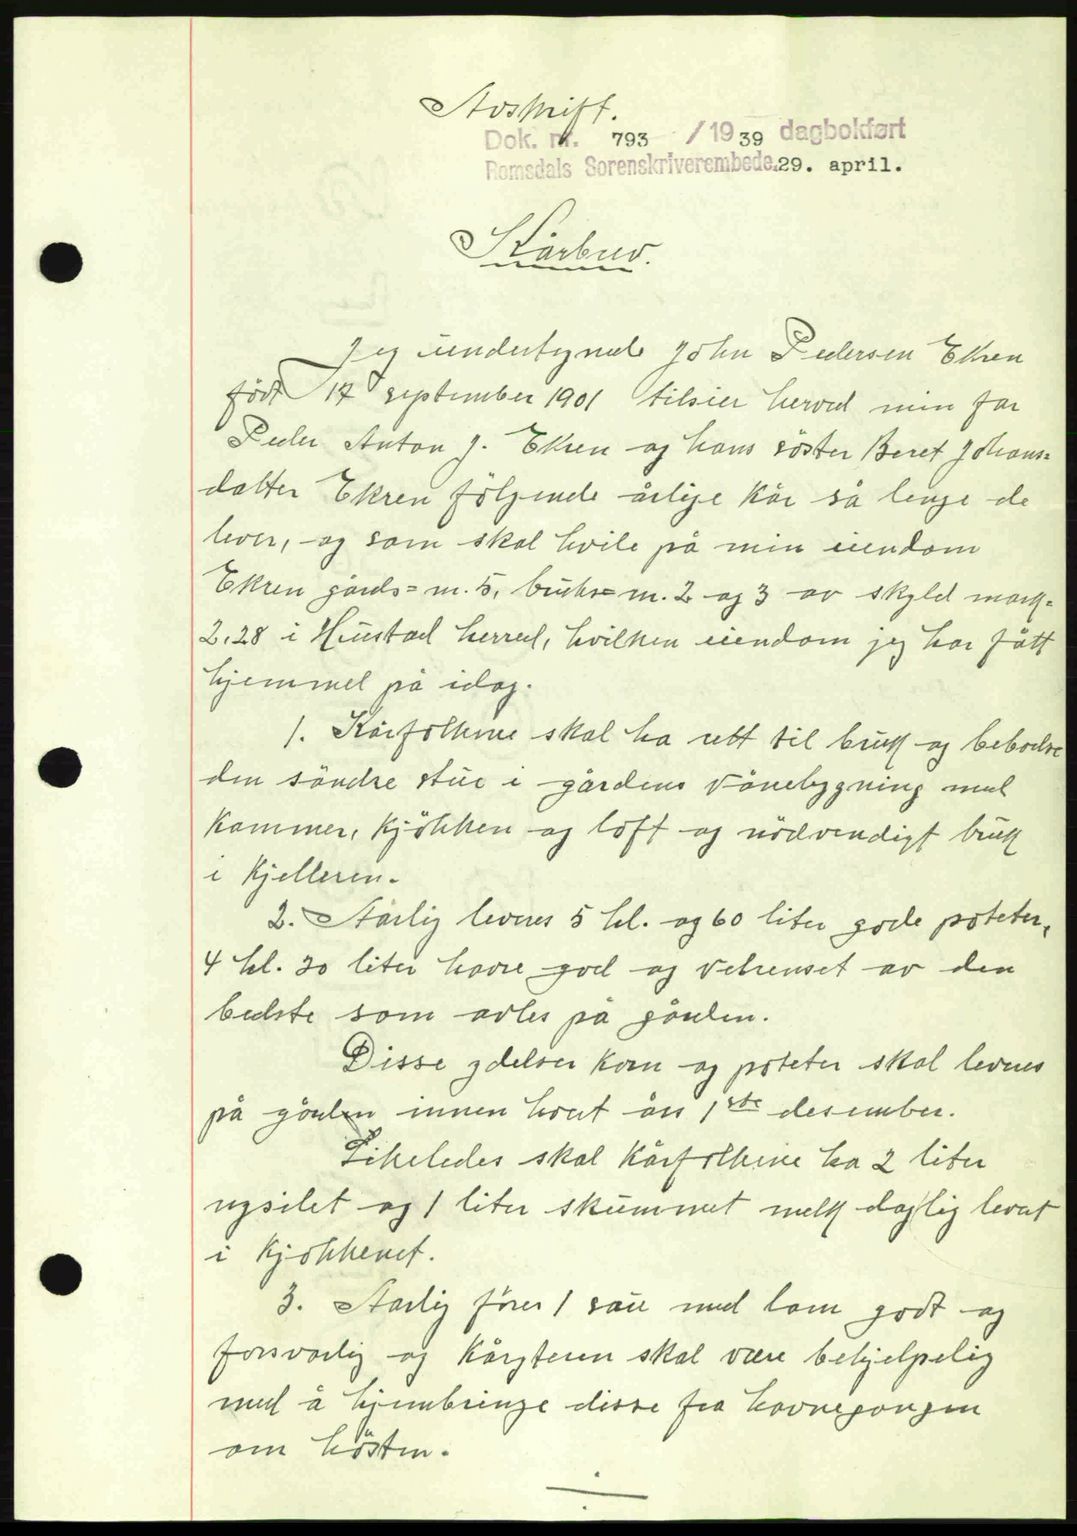 Avskrift.
Dok. nr. 793 / 1939 dagbokført
Romsdals Sorenskriverembede. 29. april.
Kårbrev.
Jeg undertegnede John Pedersen Ekren
född 17 september 1901 tilsier herved min far
Peder Anton J. Ekren og hans söster Beret Johans=
datter Ekren fölgende årlige kår så lenge de
lever, og som skal hvile på min eiendom
Ekren gårds= nr. 5, bruks= nr. 2 og 3 av skyld mark=
2.28 i Hustad herred, hvilken eiendom jeg har fått
hjemmel på idag.
1. Kårfolkene skal ha rett til bruk og beboelse
den söndre stue i gårdens vånebygning med
kammer, kjökken og loft og nödvendigt bruk
i kjelleren.
2. Aarlig leveres 5 hl. og 60 liter gode poteter,
4 hl. 20 liter havre god og velrenset av den
bedste som avles på gården.
Disse ydelser korn og poteter skal leveres
på gården innen hvert års 1ste desember.
Likeledes skal kårfolkene ha 2 liter
nysilet og 1 liter skummet melk daglig levert
i kjökkenet.
3. Aarlig föres 1 sau med lam godt og
forsvarlig og kåryteren skal være behjelpelig
med å hjembringe disse fra havnegangen
om hösten.